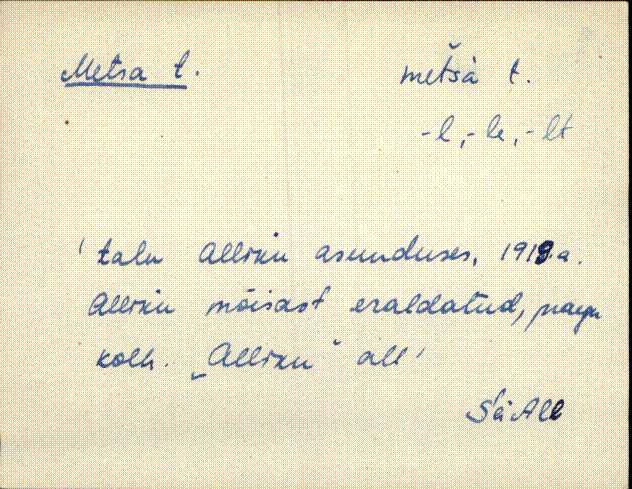 Metsa t.
metšà t.
-l, -le, -lt
' talu Alliku asunduses, 1919.a.
Alliku mõisast eraldatud, praegu
kolh. „Alliku" all '
SäAll